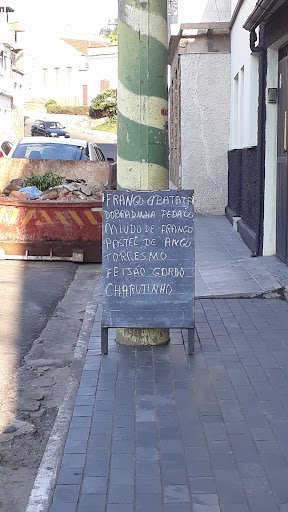 FRANGO C/BATATA
DOBRADINHA PEDAÇO
MIUDO DE FRANGO
PASTEL DE ANGÚ
TORRESMO
FEIJÃO GORDO
CHARUTINHO